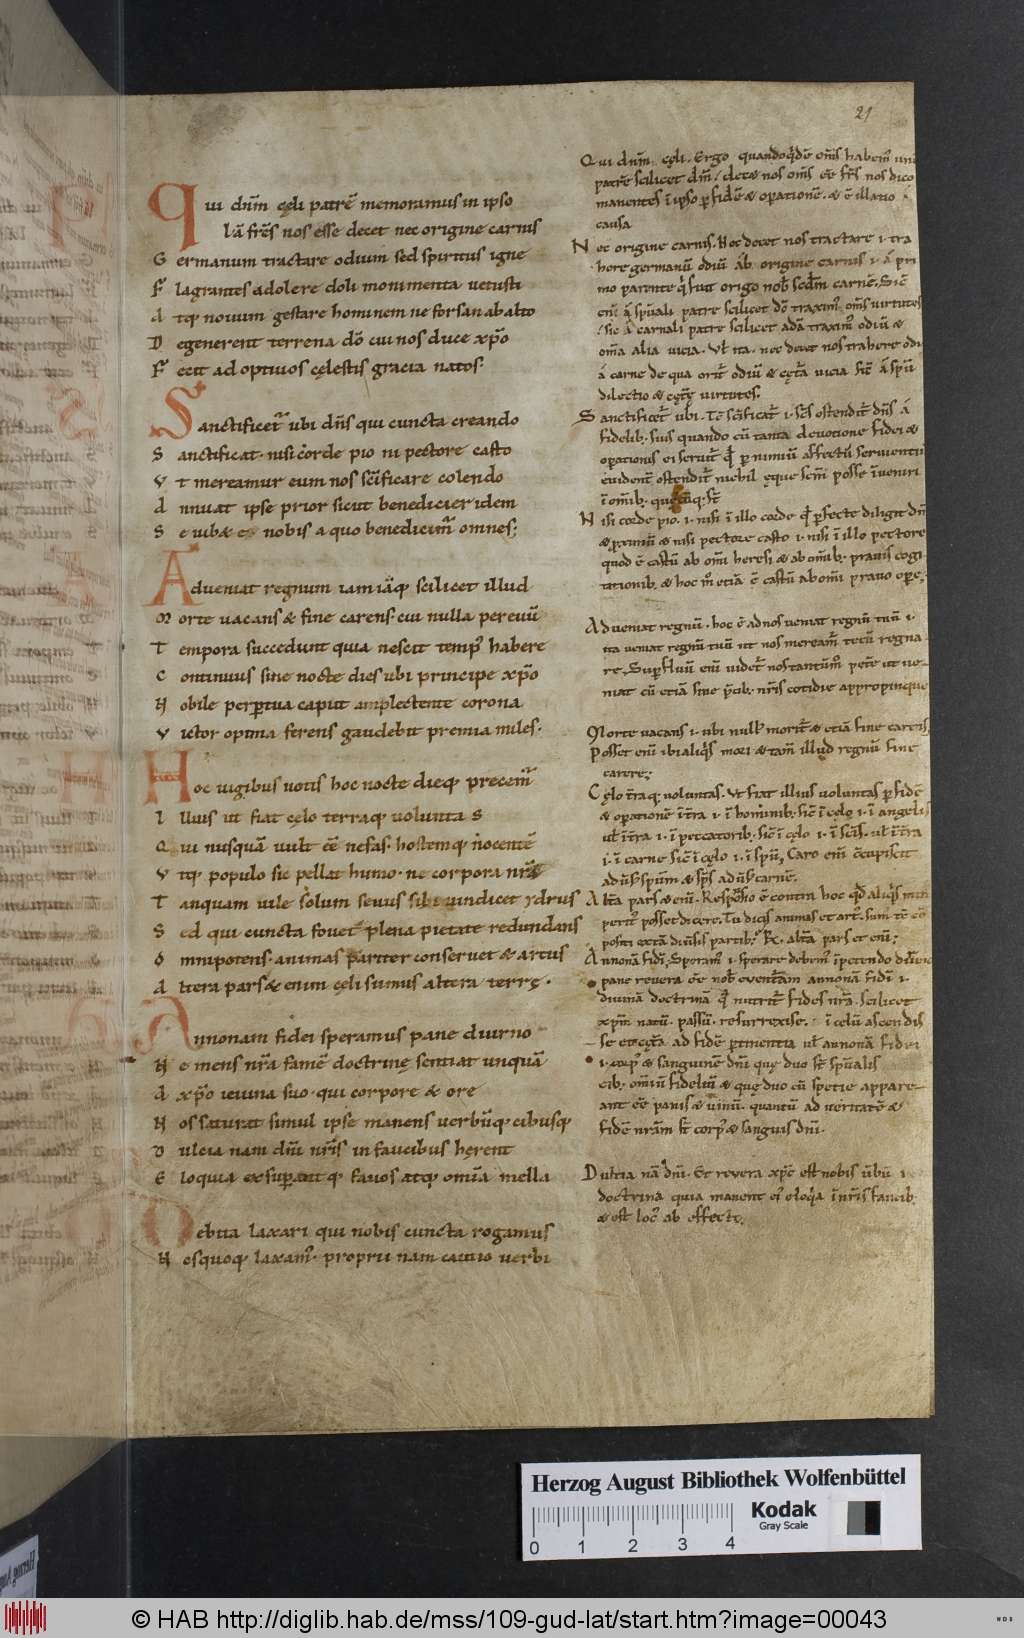 21
Qui dnm̄ cęli patrē memoramus in ipso
Iā frēs nos esse decet nec origine carnis
Germanum tractare odium sed spiritus igne
Flagrantes adolere doli monimenta uetusti
Atq; nouum gestare hominem ne forsan ab alto
Degenerent terrena dō cui nos duce xp̄o
Fecit adoptiuos cęlestis gracia natos.
Sanctificet᷑ ubi dn̄s qui cuncta creando
Sanctificat. nisi corde pio ni pectore casto
Vt mereamur eum nos scīficare colendo
Annuat ipse prior sicut benedicier idem
Se iubet & nobis a quo benedicunt᷑ omnes;
Adueniat regnum iam iāq; scilicet illud
Morte uacans & fine carens. cui nulla per euū
Tempora succedunt quia nescit temp᷒ habere
Continuus sine nocte dies ubi principe xp̄o
Nobile perpetua caput amplectente corona
Victor opima ferens gaudebit premia miles.
Hoc uigibus uotis hoc nocte dieq; precem᷑
Illius ut fiat cęlo terraq; voluntas
Qui nusquā uult eē nefas. hostemq; nocentē
Vtq; populo sic pellat humo. ne corpora nr̄a
Tanquam uile solum seuus sibi uindicet ydrus
Sed qui cuncta fouet plena pietate redundans
Omnipotens. animas pariter conseruet & artus
Altera pars & enim cęli sumus altera terrę.
Annonam fidei speramus pane diurno
Ne mens nr̄a famē doctrinę sentiat unquā
A xp̄o ieiuna suo. qui corpore & ore
Nos saturat simul ipse manens uerbūq; cibusq;
Dulcia nam dn̄i nr̄is in faucibus hęrent
Eloquia exsuperantq; fauos atq; omīa mella
Debita laxari qui nobis cuncta rogamus
Nosquoq; laxam᷒. proprii nam cautio uerbi
Qui dnm̄ cęli. Ergo quandoqdē om̄s habem᷒
patrē scilicet dm̄. decet nos om̄s eē fr̄s nos dico
manentes ī ipso p fidē & operationē. & ē illatio
causa
Nec origine carnis. Nec decet nos tractare .i. tra
here germanū odiū ab origine carnis .i. a pri
mo parente q̇ fuit origo nob̄ scdm̄ carnē. Sic̄
eni ā spūali patre scilicet dō traxim᷒ om̄s uirtutes
sic ā carnali patre scilicet adā traxim᷒ odiū &
om̄a alia uicia. Vl̄ ita. nec decet nos trahere odi
ā carne de qua orit᷑ odiū & cęt̄a uicia sic̄ ā spū
dilectio & cęt̄ę uirtutes.
Sanctificet᷑ ubi. Tē scīficat᷑ .i. scs̄ ostendit᷑ dn̄s ā
fidelib; suis quando cū tanta deuotione fidei &
operationis ei seruit᷑ q̄ p nimiū affectū seruientiū
euident̄ ostendit᷑ nichil ęque scm̄ posse īueniri
ī om̄ib; quęcūq; st̄
Nisi corde pio .i. nisi ī illo corde q̄ pfecte diligit dm̄
& pximū & nisi pectore casto .i. nisi ī illo pectore
quod ē castū ab omī heresi & ab om̄ib; prauis cogi
tationib; & hoc m̄ etiā ē castū ab omī prauo ope;
Adueniat regnū. hoc ē ad nos ueniat regnū tuū .i.
ita ueniat regnū tuū ut nos meream᷑ tecū regna
re. Supfluū enī uidet᷑ nos tantūm᷒ petē ut ue
niat cū etiā sine p̄cib; nr̄is cotidie appropinquet
Morte uacans .i. ubi null᷒ morit᷑ & etiā fine carens
Posset enī ibi aliq̇s mori & tam̄ illud regnū fine
carere;
Cęlo t̄raq; voluntas. Vt fiat illius voluntas p fidē
& operationē ī t̄ra .i. ī hominib; sic̄ ī cęlo .i. ī angelis
ul̄ ī t̄ra .i. ī peccatorib; sic̄ ī cęlo .i. ī sc̄is. ul̄ ī t̄ra
.i. ī carne sic̄ ī cęlo .i. ī spū, Caro enī c̄cupiscit
aduersus sp̄um & sp̄s aduersus carnē.
Alt̄a pars & enī. Responsio ē contra hoc qd̄ aliq̇s
posset dicere. Tu dicis animas et art᷒.
positi ex tā diuersis partib;. R̄. alt̄a pars et enī;
Annonā fidei, Speram᷒ .i. sperare debem᷒ īpetendo diuinū
panē reuera eē nob̄ euent̄am annonā fidei .i.
diuinā doctrinā q̄ nutrit᷑ fides nr̄a. scilicet
xp̄m natū. passū. resurrexisse. ī celū ascendis
se et cęt̄a ad fidē ptinentia ul̄ annonā fidei
.i. corp᷒ & sanguinē dn̄i quę duo st̄ spūalis
cib; om̄iū fideliū & quę duo cū specie appare
ant eē panis & uinū. quantū ad ueritatē &
fidē nr̄am st̄ corp᷒ & sanguis dn̄i.
Dulcia nā dn̄i. Et reuera xp̄c est nobis uerbū .i.
doctrina quia manent ei᷒ eloq̇a ī nr̄is faucib;
& est loc᷒ ab effectu.
Herzog August Bibliothek Wolfenbüttel
0 1 2 3 4
Kodak
Gray Scale
© HAB http://diglib.hab.de/mss/109-gud-lat/start.htm?image=00043